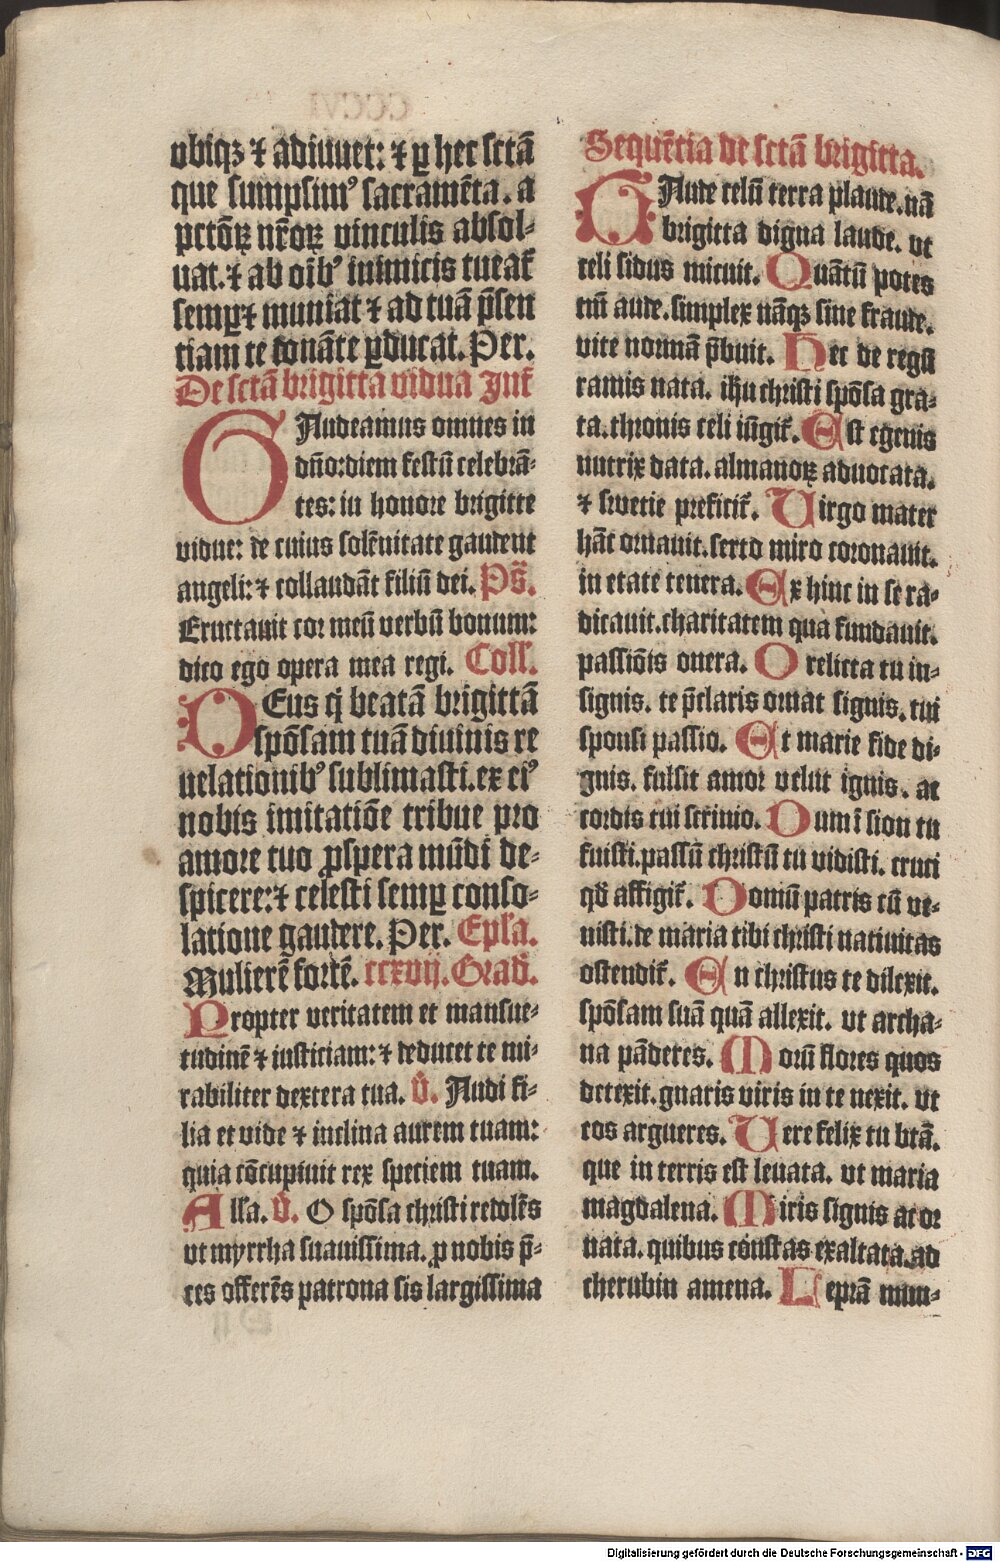 vbiqꝫ ⁊ adiuuet: ⁊ ꝑ hec sctā
que sumpsimꝰ sacramēta. a
pctōꝝ nr̄oꝝ vinculis absol-
uat. ⁊ ab oībꝰ inimicis tueat᷑
semꝑ ⁊ muniat ⁊ ad tuā p̄sen
tiam te donāte ꝑducat. Per.
De sctā brigitta vidua Int᷑
GAudeamus omnes in
dn̄o: diem festū celebrā-
tes: in honore brigitte
vidue: de cuius solēnitate gaudent
angeli: ⁊ collaudāt filiū dei. Ps̄.
Eructauit cor meū verbū bonum:
dico ego opera mea regi. Coll̄.
DEus q̄ beatā brigittā
spōsam tuā diuinis re
uelationibꝰ sublimasti. ex eiꝰ
nobis imitatiōe tribue pro
amore tuo ꝓspera mūdi de-
spicere: ⁊ celesti semꝑ conso-
latione gaudere. Per. Epl̄a.
Mulierē fortē. ccxvij. Grad̄.
Propter veritatem et mansue-
tudinē ⁊ iusticiam: ⁊ deducet te mi-
rabiliter dextera tua. V̄. Audi fi-
lia et vide ⁊ inclina aurem tuam:
quia cōcupiuit rex speciem tuam.
All̄a. V̄. O spōsa christi redolēs
vt myrrha suauissima. ꝓ nobis p̄-
ces offerēs patrona sis largissima
Sequētia de sctā brigitta.
GAude celū terra plaude. nā
brigitta digna laude. vt
celi sidus micuit. Quātū potes
tm̄ aude. simplex nāqꝫ sine fraude.
vite normā p̄buit. Hec de regū
ramis nata. ihu christi spōsa gra-
ta. thronis celi iūgit᷑. Est egenis
nutrix data. almanoꝝ aduocata.
⁊ swetie preficit᷑. Virgo mater
hāc ornauit. serto miro coronauit.
in etate tenera. Ex hinc in se ra-
dicauit. charitatem qua fundauit.
passiōis onera. O relicta tu in-
signis. te p̄claris ornat signis. tui
sponsi passio. Et marie fide di-
gnis. fulsit amor velut ignis. ac
cordis tui scrinio. Dum ī sion tu
fuisti. passū christū tu vidisti. cruci
qd̄ affigit᷑. Domū patris cū ve-
nisti. de maria tibi christi natiuitas
ostendit᷑. En christus te dilexit.
spōsam suā quā allexit. vt archa-
na pāderes. Morū flores quos
detexit. gnaris viris in te nexit. vt
cos argueres. Vere felix tu btā.
que in terris est leuata. vt maria
magdalena. Miris signis ac or
nata. quibus cōstas exaltata. ad
cherubin amena. Leprā mun-
Digitalisierung gefördert durch die Deutsche Forschungsgemeinschaft - DFG